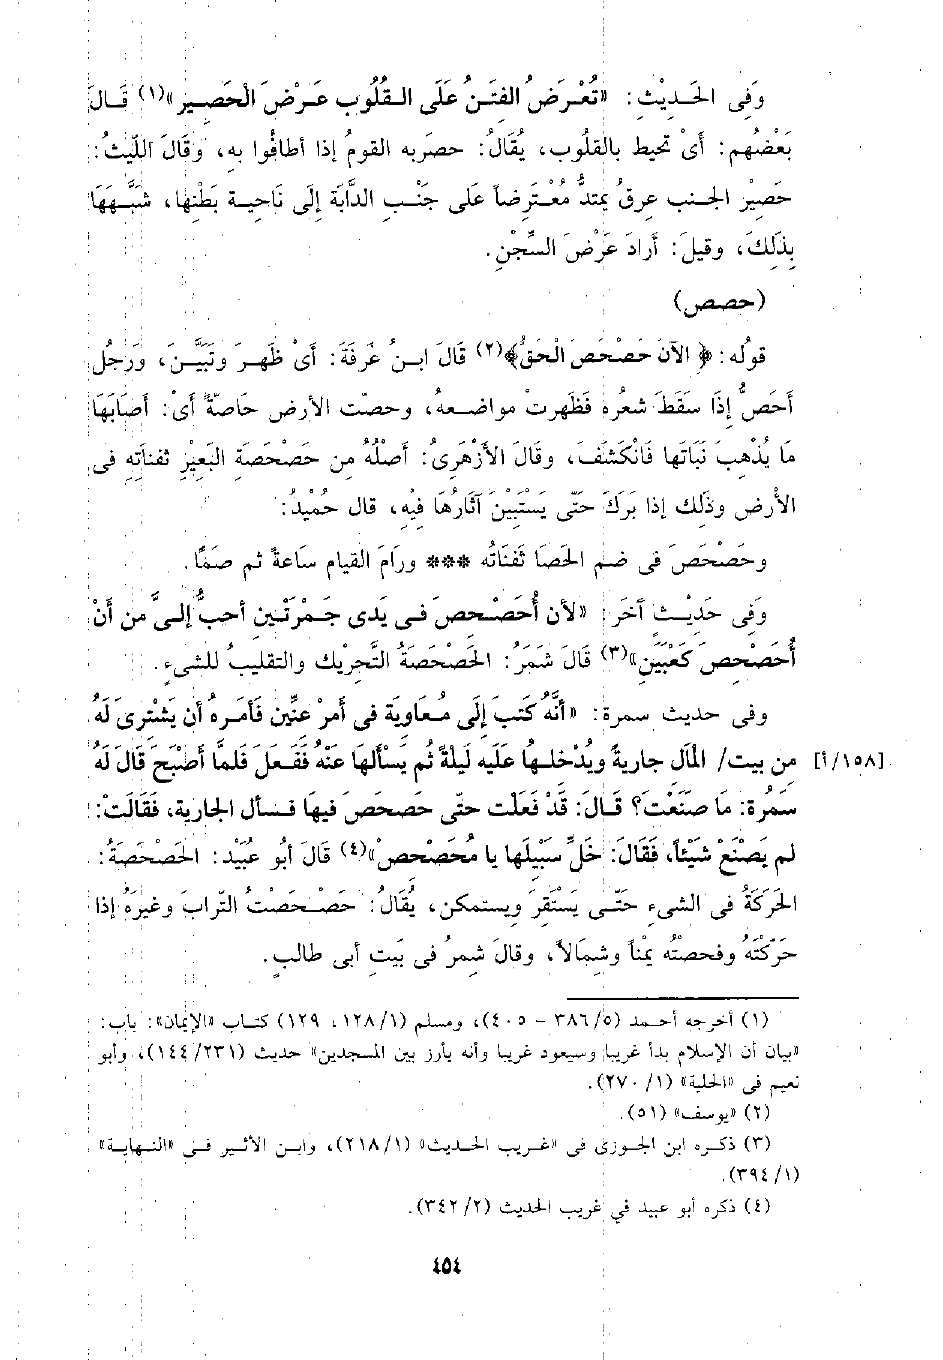 وَفِى الحَـدِيْثِ: «تُعْرَضُ الفتَـنُ عَلَى القلُوبِ عَـرْضَ الْحَصِـيرِ»(١) قَـالَ
بَعْضُهم: أىْ تحيط بالقلُوبِ، يُقَالُ: حصر به القومُ إذا أطافُوا به، وَقَالَ اللَّيثُ:
حَصِيْرُ الجنـب عِرقٌ يمتدُّ مُعْـتَرضاً عَلى جَنْـب الدابَّة إلَى نَاحِيـة بَطْنهَا، شَبَّـهَهَا
بِذَلِكَ، وقيلَ: أرادَ عَرْضَ السِّجْنِ.
(حصص)
قولُه: ﴿ الآنَ حَصْحَصَ الْحَقُّ﴾(٢) قَالَ ابـنُ عَرَفَةَ: أىْ ظَهـرَ وتَبَيَّـنَ، ورَجلٌ
أحَصُّ إذَا سَقَطَ شعرُه فَظهرتْ مواضـعهُ، وحصَّت الأرض حَاصةٌ أىْ: أصَابَهَا
مَا يُذْهِبُ نَبَاتها فَانْكَشَفَ، وقَالَ الأزْهَرِىُّ: أصْلُهُ من حَصْحَصَةِ البَعيْرِ ثفنَاتِه فى
الأرْضِ وذَلك إذا بَركَ حَتَّى يَسْتَبِيْنَ آثارُهَا فيْه، قال حُمْيدٌ:
وحَصْحَصَ فى صُم الحَصَا ثَفنَاتُه *** ورَامَ القيام سَاعةً ثم صَمَّا.
وَفِى حَدِيْـث آخَر: «لأن أُحَصْـحصَ فـى يَدى جَـمْرَتَـين أحبُّ إلىَّ من أنْ
أُحَصْحصَ كَعْبَيْنِ»(٣) قَالَ شَمَرُ: الحَصْحَصَةُ التَّحرِيْك والتقليبُ للشىء.
وفى حديث سمرة: «أنَّه كَتَبَ إلَى مُعَاوية فى أمرْ عنِّين فَأمَره أن يَشْترِىَ لَهُ
[١٥٨/أ] من بيت/ المَال جاريةً ويُدْخلـها عَلَيه لَيلةً ثم يَسْألهَا عَنْهُ فَفَعـلَ فَلمَّا أصْبَحَ قَالَ لَه
سَمرة: مَا صنَعْتَ؟ قـالَ: قَدْ فَعَلت حتَّى حصحَصَ فيهَا فـسأل الجارية، فَقَالَتْ:
لم يَصْنَعْ شَيْئاً، فَقَالَ: خَلِّ سَبِيْلَها يا مُحَصْحصْ»(٤) قَالَ أبُو عُبَيْد: الحَصْحصَةُ:
الحَرَكَةُ فى الشىء حَتَّـى يَسْتَقرَّ ويستمكن، يُقَالُ: حَصْـحَصْتُ التّرابَ وغيرَهُ إذا
حَرَّكْتَهُ وفحصْتُه يمْناً وشِمَالاً، وقالَ شمرُ فى بَيت أبى طالبٍ.
(١) أخرجه أحمد (٥/٣٨٦ - ٤٠٥)، ومسلم (١/١٢٨، ١٢٩) كتاب «الإيمان»: باب:
«بيان أن الإسلام بدأ غريبا وسيعود غريبا وأنه يأرز بين المسجدين» حديث (١٤٤/٢٣١)، وأبو
نعيم فى «الحلية» (١/٢٧٠).
(٢) «يوسف» (٥١).
(٣) ذكره ابن الجوزى فى «غريب الحديث» (١/٢١٨)، وابن الأثير فى «النهاية»
(١/٣٩٤).
(٤) ذكره أبو عبيد في غريب الحديث (٢/٣٤٢).
٤٥٤